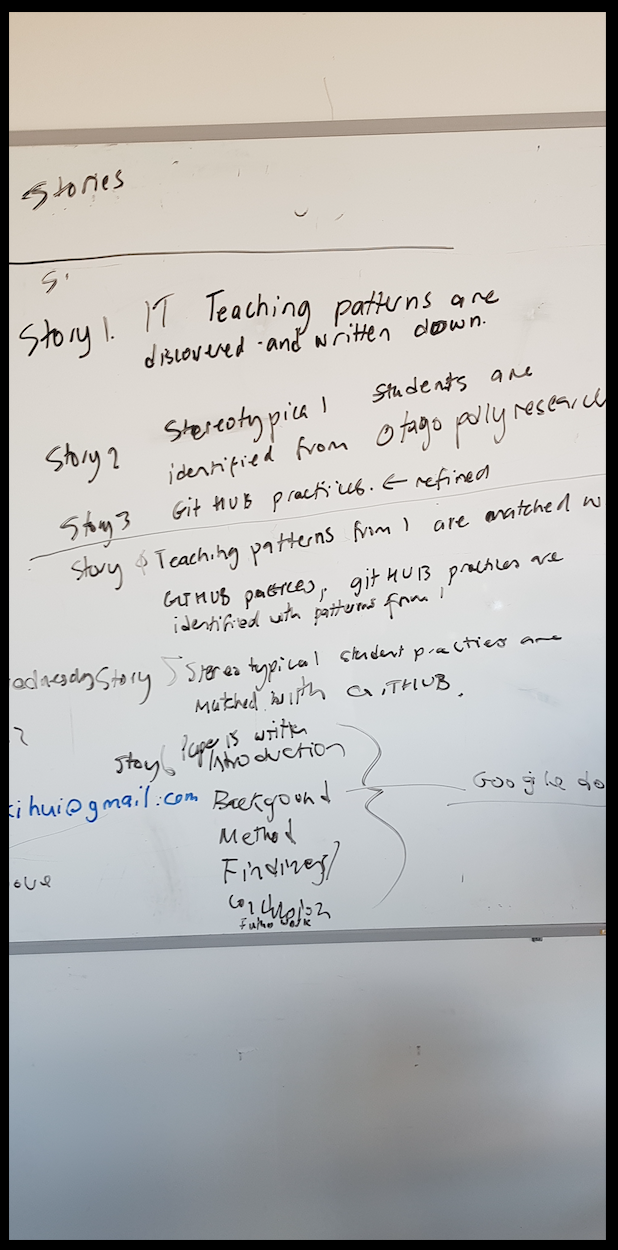 Stories
S.
Story 1. IT Teaching patterns are
discovered and written down.
Story 2 Stereotypical students are
identified from Otago polly research
Story 3 Git HUB practices. ← refined
Story Teaching patterns from 1 are matched w
GITHUB practices, git HUB practices are
identified with patterns from 1
Story 5 Stereotypical student practices are
Matched with GITHUB.
?
Story 6 Paper is written
Introduction
Google do
ihui@gmail.com Background
Method
Findings
ove
Conclusion
Future work